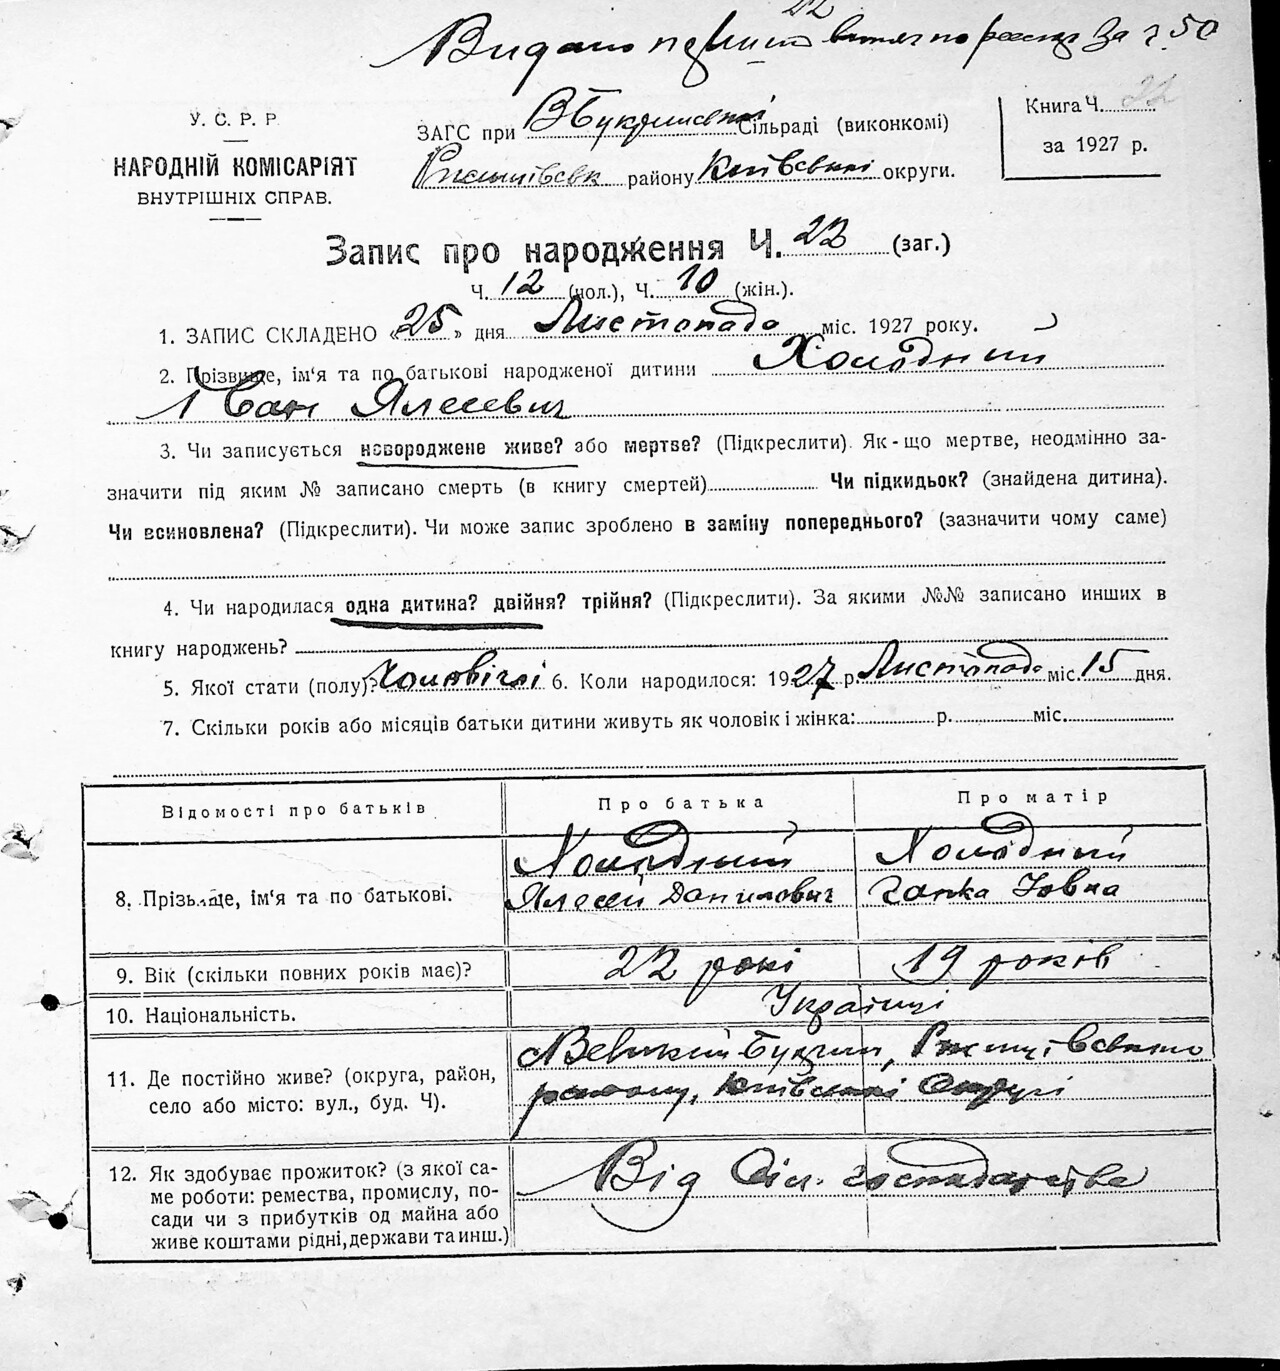 Видано первіст 22 витяг по реєстр За ч 50
У. С. Р. Р.
НАРОДНІЙ КОМІСАРІЯТ
ВНУТРІШНІХ СПРАВ.
ЗАГС при В Букринській Сільраді (виконкомі)
Ржищівськ району Київської округи.
Книга Ч. 22
за 1927 р.
Запис про народження Ч. 22 (заг.)
Ч. 12 (чол.), Ч. 10 (жін.).
1. ЗАПИС СКЛАДЕНО «25» дня Листопада міс. 1927 року.
2. Прізвище, ім‘я та по батькові народженої дитини Холодний
Іван Ялесевич
3. Чи записується новороджене живе? або мертве? (Підкреслити). Як-що мертве, неодмінно за-
значити під яким № записано смерть (в книгу смертей) Чи підкидьок? (знайдена дитина).
Чи всиновлена? (Підкреслити). Чи може запис зроблено в заміну попереднього? (зазначити чому саме)
4. Чи народилася одна дитина? двійня? трійня? (Підкреслити). За якими №№ записано инших в
книгу народжень?
5. Якої стати (полу)? Чоловічої 6. Коли народилося: 1927 р. Листопада міс. 15 дня.
7. Скільки років або місяців батьки дитини живуть як чоловік і жінка: р. міс.
Відомості про батьків Про батька Про матір
8. Прізвище, ім‘я та по батькові. Холодний Холодний
Ялесей Данилович Ганка Іовна
9. Вік (скільки повних років має)? 22 рокі 19 років
10. Національність. Українці
11. Де постійно живе? (округа, район, Великий Букрин, Ржищівського
село або місто: вул., буд. Ч). району, Київської Округі
12. Як здобуває прожиток? (з якої са- Від Сіл. господарства
ме роботи: ремества, промислу, по-
сади чи з прибутків од майна або
живе коштами рідні, держави та инш.)